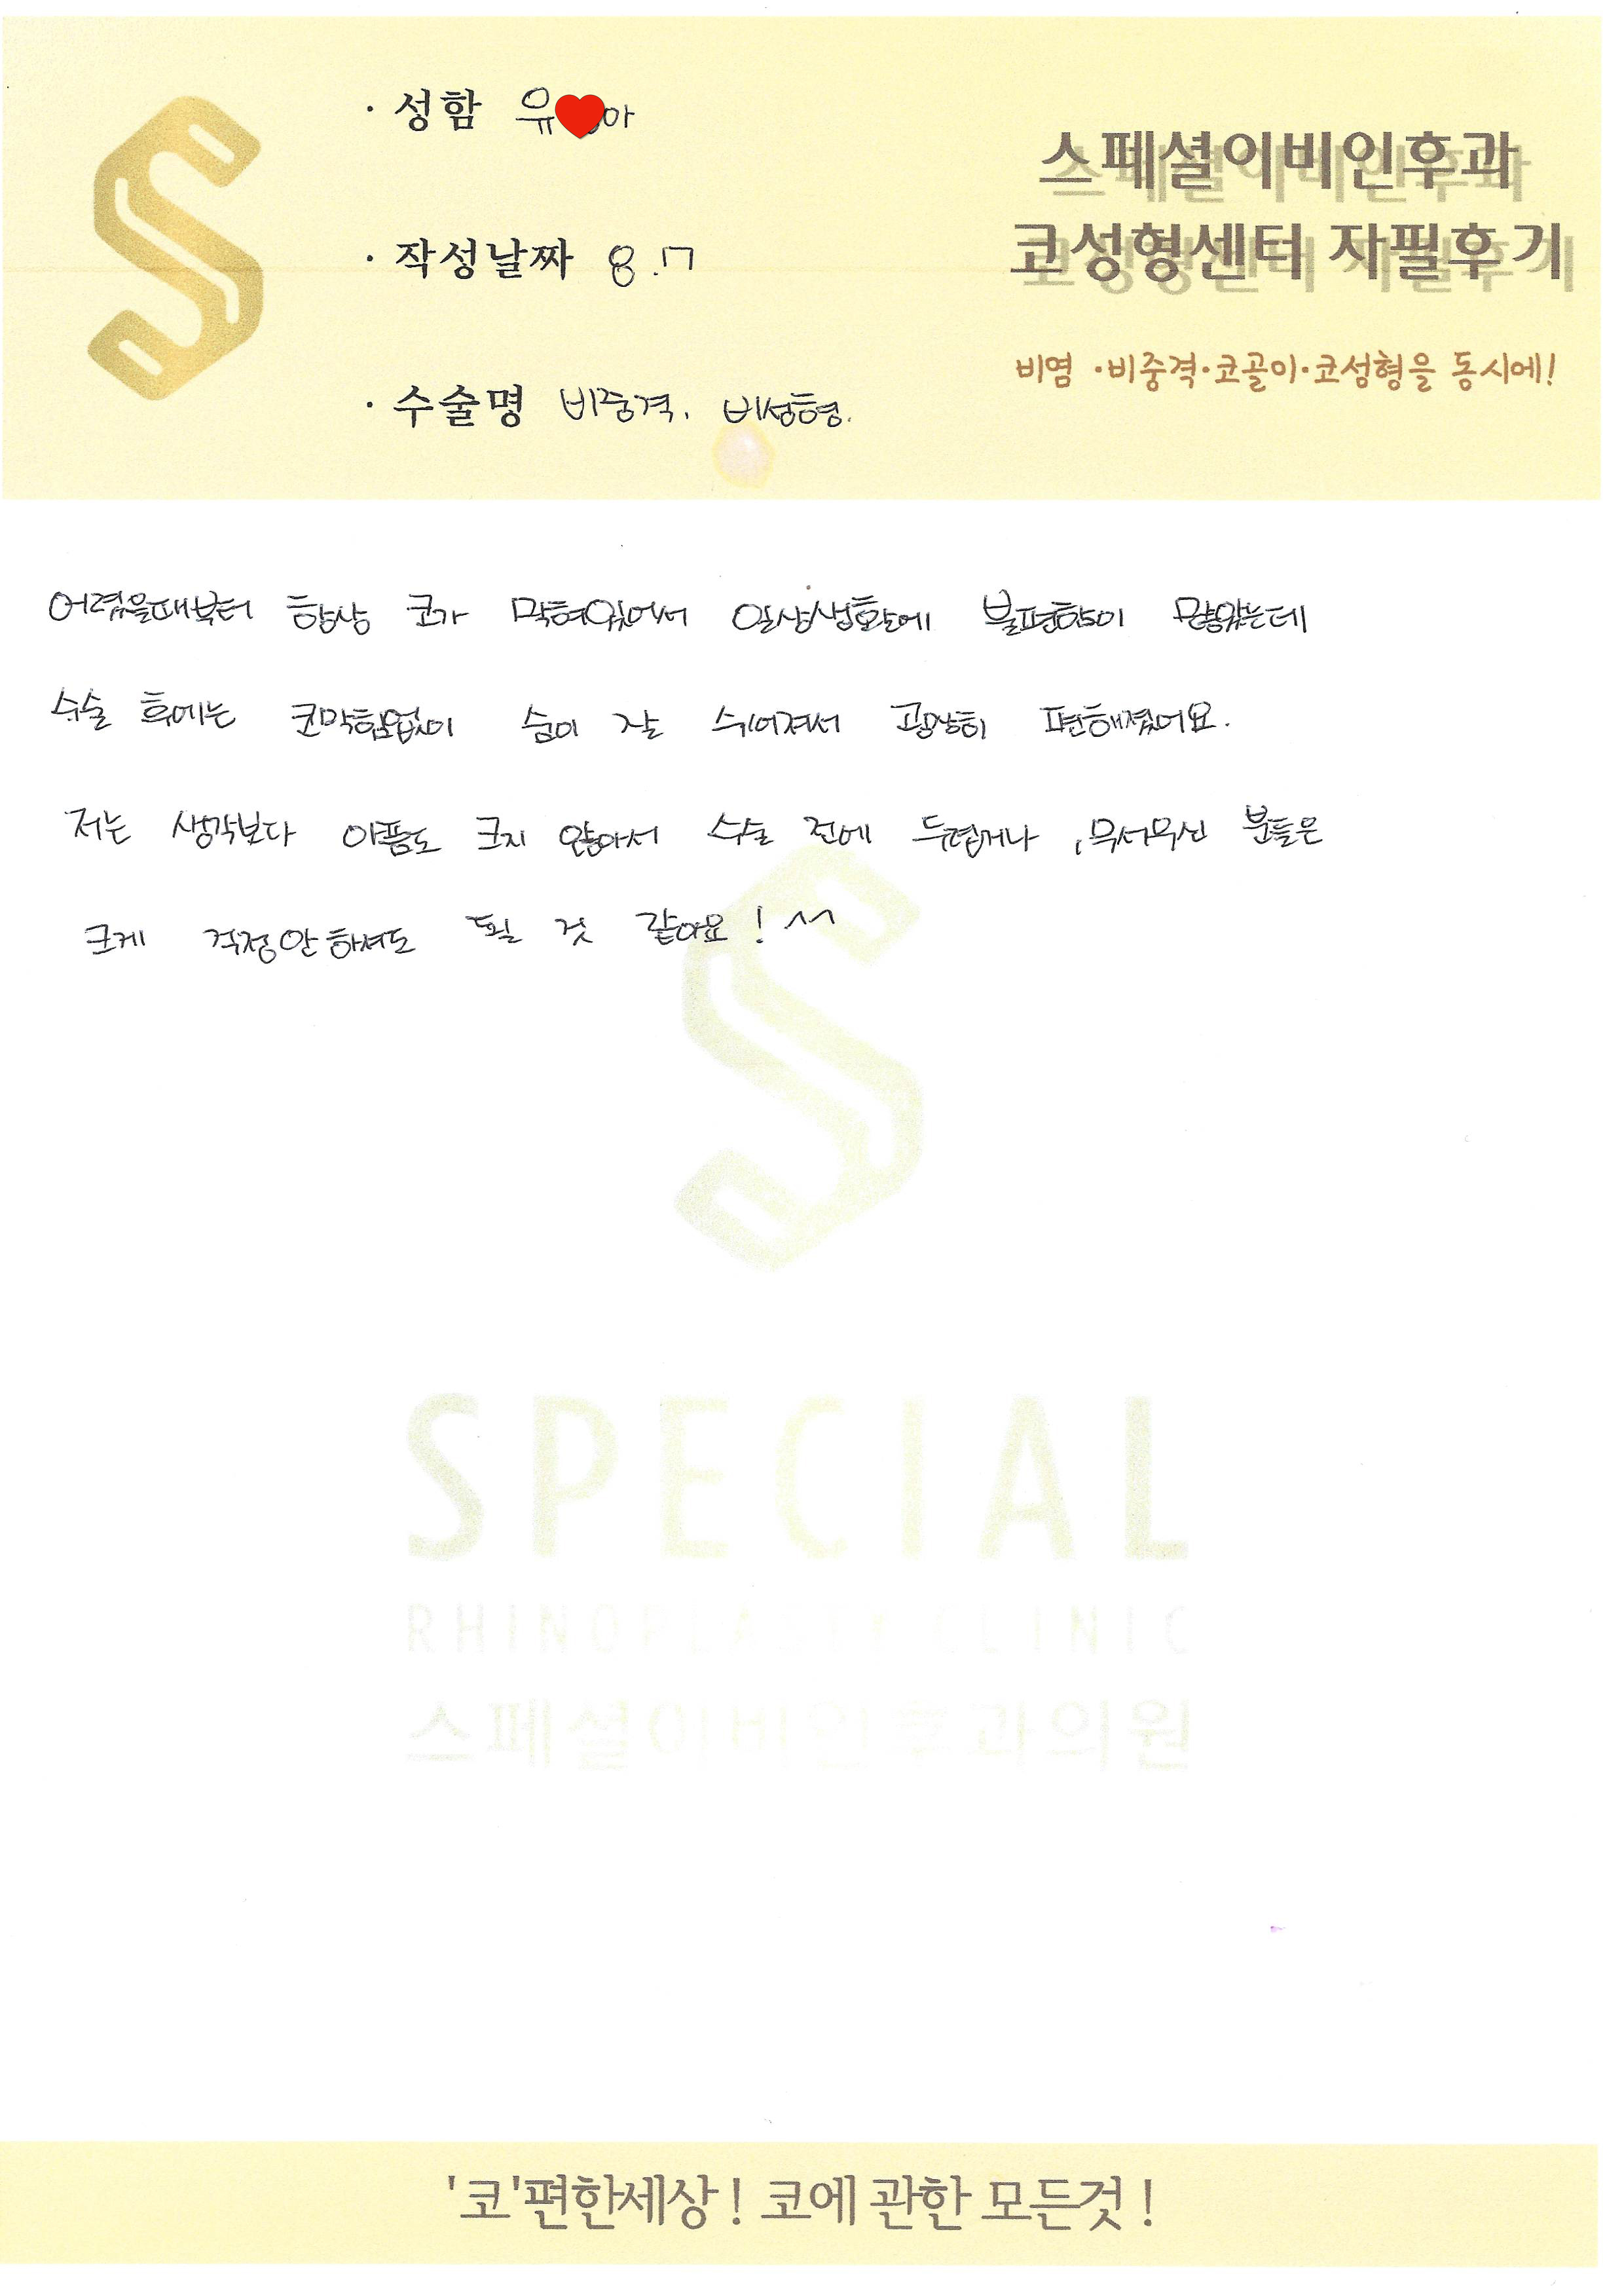 · 성함 유아
스페셜이비인후과
코성형센터 자필후기
· 작성날짜 8.7
비염·비중격·코골이·코성형을 동시에!
· 수술명 비중격, 비성형.
어렸을때부터 항상 코가 막혀있어서 일상생활에 불편함이 많았는데
수술 후에는 코막힘없이 숨이 잘 쉬어져서 굉장히 편해졌어요.
저는 생각보다 아픔도 크지 않아서 수술 전에 두렵거나, 무서우신 분들은
크게 걱정안하셔도 될 것 같아요! ^^
SPECIAL
RHINOPLASTY CLINIC
스페셜이비인후과의원
'코'편한세상! 코에 관한 모든것!